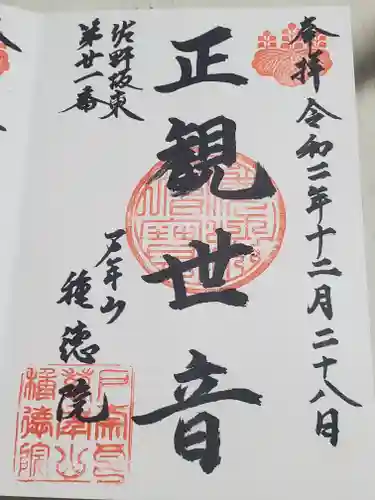 奉拝 令和三年十二月二十八日
正観世音
佐野坂東
第廿一番
万年山
種徳院
種徳院